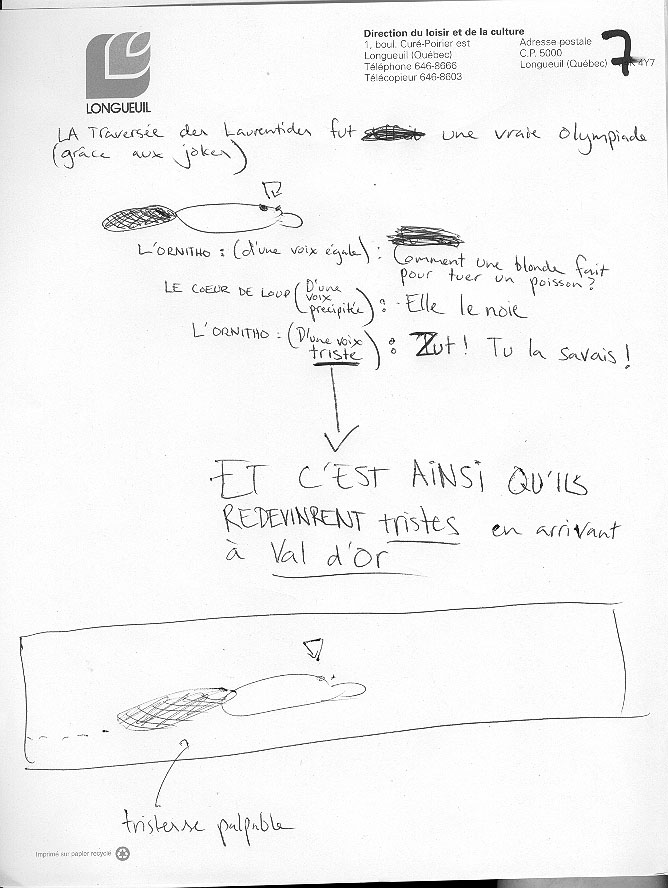 LONGUEUIL
Direction du loisir et de la culture
1, boul. Curé-Poirier est
Longueuil (Québec)
Téléphone 646-8666
Télécopieur 646-8603
Adresse postale
C.P. 5000
Longueuil (Québec)
4Y7
7
LA Traversée des Laurentides fut une vraie olympiade
(grâce aux jokes)
L'ORNITHO : (d'une voix égale) : Comment une blonde fait
pour tuer un poisson ?
LE COEUR DE LOUP (D'une
voix
précipitée) : - Elle le noie
L'ORNITHO : (D'une voix
triste) : Zut ! Tu la savais !
ET C'EST AiNSi QU'ILS
REDEVINRENT tristes en arrivant
à Val d'Or
tristesse palpable
Imprimé sur papier recyclé